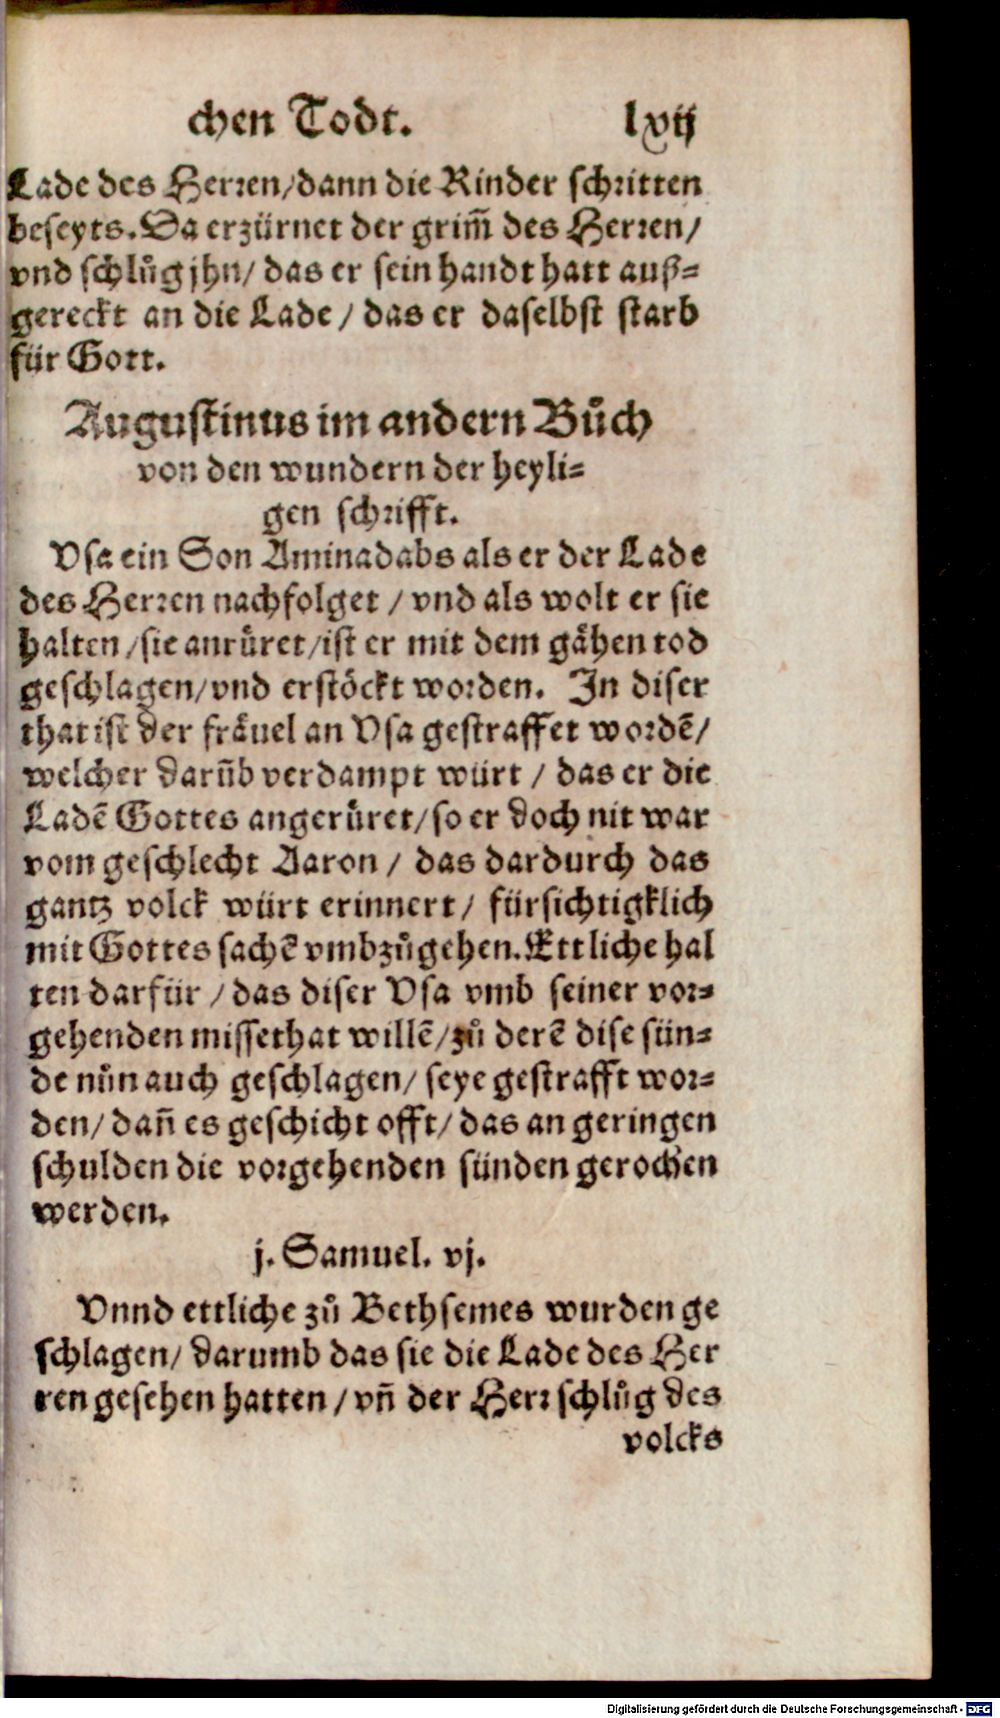 chen Todt. lxvij
Lade des Herren/dann die Rinder schritten
beseyts. Da erzürnet der grim̃ des Herren/
vnd schlůg jhn/ das er sein handt hatt auß-
gereckt an die Lade / das er daselbst starb
für Gott.
Augustinus im andern Bůch
von den wundern der heyli-
gen schrifft.
Vsa ein Son Aminadabs als er der Lade
des Herren nachfolget / vnd als wolt er sie
halten /sie anrůret/ist er mit dem gåhen tod
geschlagen/vnd erstöckt worden. In diser
that ist der fråuel an Vsa gestraffet wordẽ/
welcher darũb verdampt würt / das er die
Ladẽ Gottes angerůret/so er doch nit war
vom geschlecht Aaron / das dardurch das
gantz volck würt erinnert / fürsichtigklich
mit Gottes sachẽ vmbzůgehen. Ettliche hal
ten darfür / das diser Vsa vmb seiner vor-
gehenden missethat willẽ/zů derẽ dise sün-
de nůn auch geschlagen/ seye gestrafft wor-
den/ dañ es geschicht offt/ das an geringen
schulden die vorgehenden sünden gerochen
werden.
j. Samuel. vj.
Vnnd ettliche zů Bethsemes wurden ge
schlagen/ darumb das sie die Lade des Her
ren gesehen hatten / vñ der Herr schlůg des
volcks
Digitalisierung gefördert durch die Deutsche Forschungsgemeinschaft - DFG